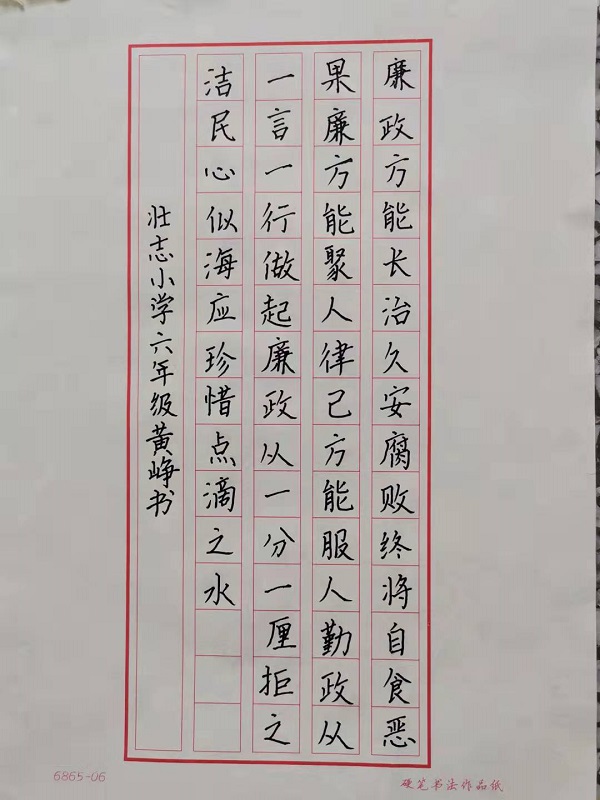 廉政方能长治久安腐败终将自食恶
果廉方能聚人律己方能服人勤政从
一言一行做起廉政从一分一厘拒之
洁民心似海应珍惜点滴之水
壮志小学六年级黄峥书
6865-06
硬笔书法作品纸